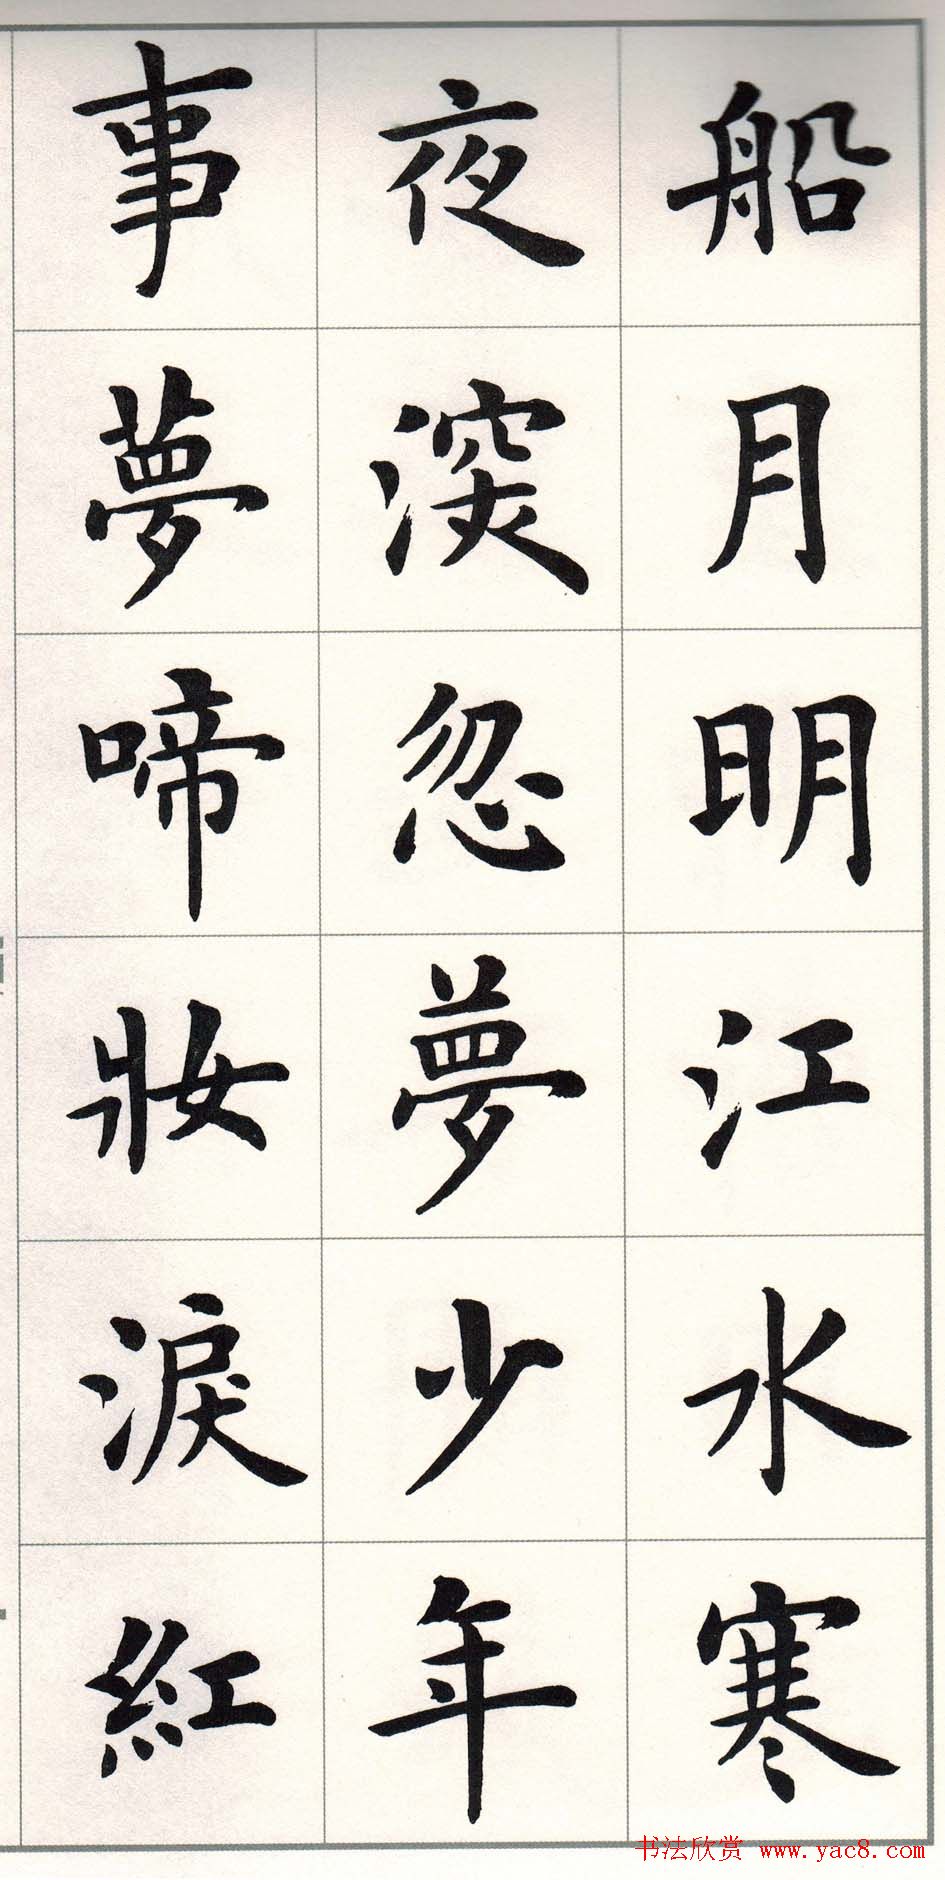 船月明江水寒
夜深忽夢少年
事夢啼妝淚紅
书法欣赏 www.yac8.com